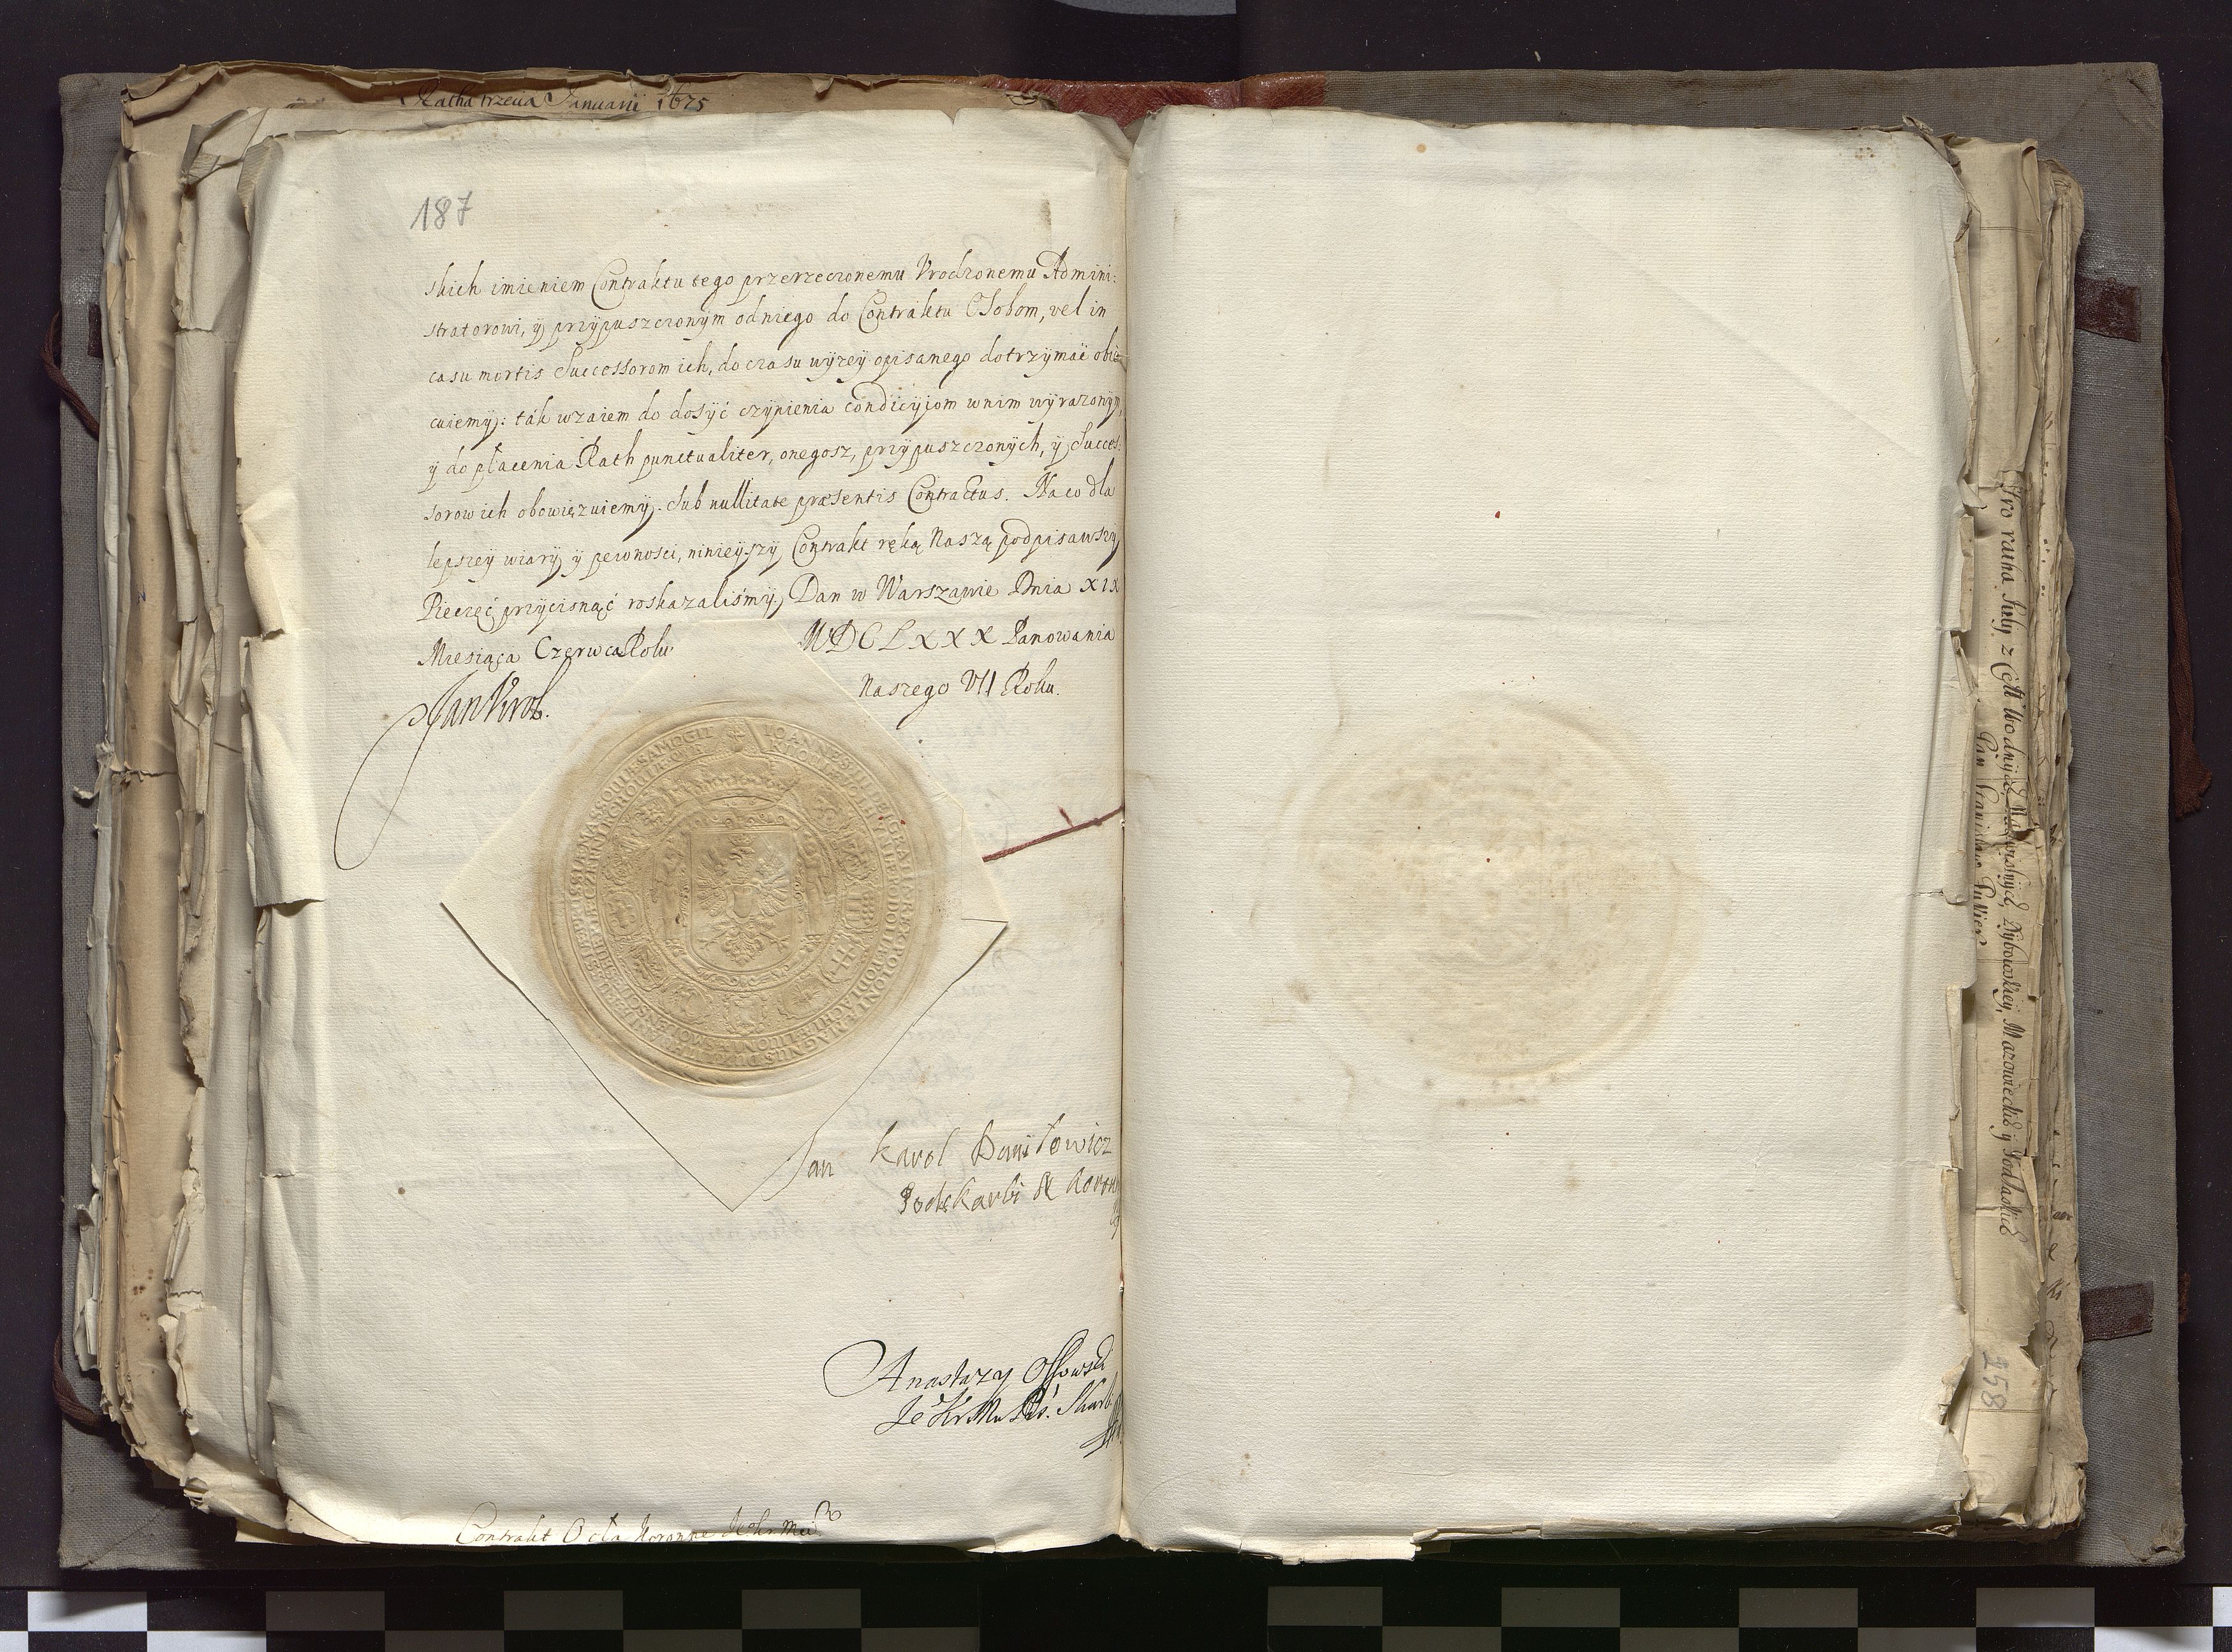 Ratha trzecia Januarii 1675
187
skich imieniem Contraktu tego przerzeczonemu Vrodzonemu Admini:
stratorowi, ÿ przÿpuszczonÿm od niego do Contraktu Osobom, vel in
casu mortis Successorom ich, do czasu wÿzeÿ opisanego dotrzÿmać obie
cuiemÿ: ták wzaiem do dosÿć czÿnienia condicÿiom w nim wÿrazonÿm,
ÿ do płacenia Rath punctualiter, onegosz, przÿpuszczonÿch, ÿ Succes:
sorow ich obowięzuiemÿ. Sub nullitate præsentis Contractus. Na co dla
lepszeÿ wiarÿ ÿ pewnosci, ninieÿszÿ Contrakt ręką Naszą podpisawszÿ
Pieczęć przÿcisnąć roskazalismÿ, Dan w Warszawie Dnia XIX
Miesiąca Czerwca Roku MDCLXXX Panowania
Naszego VII Roku.
Jan Krol.
IOANNES III DEI GRATIA REX POLONIÆ MAGNUS DUX LITHUANIÆ RUSSIÆ PRUSSIÆ MASSOVIÆ SAMOGIT
KIIOVIÆ VOLHYNIÆ PODOLIÆ PODLACHIÆ LIVONIÆ SMOLENSCIÆ SEVERIÆ CZERNIECHOVIÆ QUE
Jan Karol Daniłowicz
Podskarbi Koron
Anastazy
Je Kr Mu Pis. Skarb
Contrakt Cła Koronne Je Kr Mci
Pro ratha Julÿ z Ceł Wodnÿch Mazowieckich ÿ Podlaskich
Pan
258